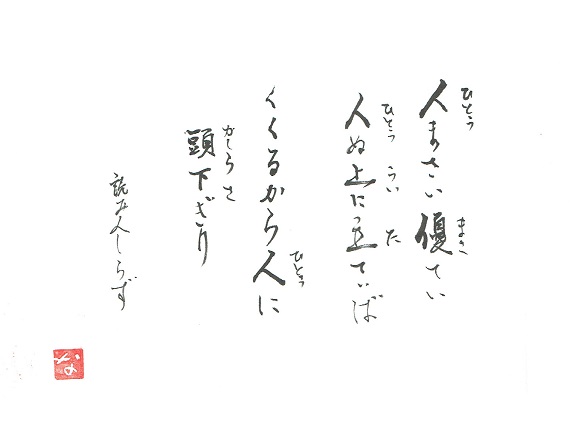 人まさい優てい
人ぬ上に立てぃば
くくるから人に
頭下ぎり
読み人しらず